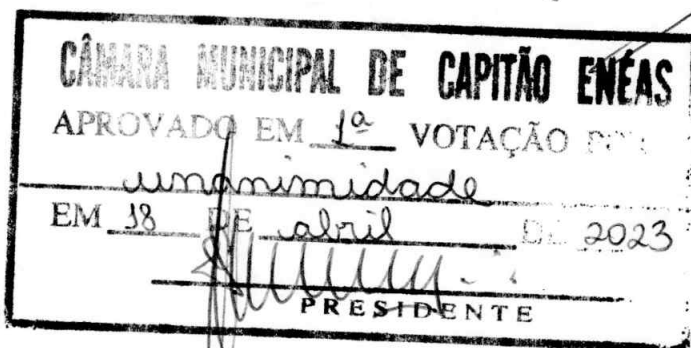 CÂMARA MUNICIPAL DE CAPITÃO ENÉAS
APROVADO EM 1ª VOTAÇÃO POR
unanimidade
EM 18 DE abril DE 2023
PRESIDENTE